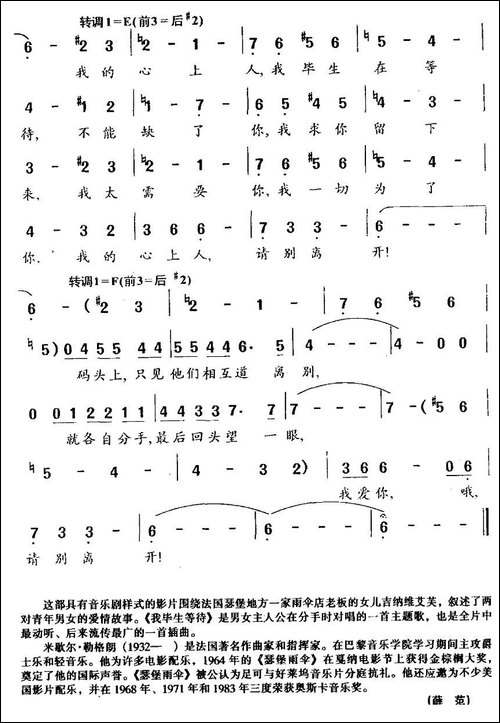 转调1=E(前3=后♯2)
6 - ♯2 3 ♮2 - 1 - 7 6 ♯5 6 ♮5 - 4 -
我的心上人,我毕生在等
4 - ♯1 2 ♮1 - 7 - 6 5 ♯4 5 ♮4 - 3 -
待,不能缺了你,我求你留下
3 - ♯2 3 ♮2 - 1 - 7 6 ♯5 6 ♮5 - 4 -
来,我太需要你,我一切为了
4 - 3 2 3 6 6 - 7 3 3 - 6 - - -
你.我的心上人,请别离开!
转调1=F(前3=后♯2)
6 - (♯2 3 ♮2 - 1 - 7 6 ♯5 6
♮5) 0 4 5 5 4 4 5 5 4 4 6. 5 5 4 - - - 4 - 0 0
码头上,只见他们相互道离别,
0 0 0 1 2 2 2 1 1 4 4 3 3 2 7. 7 7 - - - 7 - (♯5 6
就各自分手,最后回头望一眼,
♮5 - 4 - 4 - 3 2) 3 6 6 - 0 6
我爱你,哦,
7 3 3 - 6 - - - 6 - - - 6 - 0 0
请别离开!
这部具有音乐剧样式的影片围绕法国瑟堡地方一家雨伞店老板的女儿吉纳维艾芙,叙述了两
对青年男女的爱情故事。《我毕生等待》是男女主人公在分手时对唱的一首主题歌,也是全片中
最动听、后来流传最广的一首插曲。
米歇尔·勒格朗(1932— )是法国著名作曲家和指挥家。在巴黎音乐学院学习期间主攻爵
士乐和轻音乐。他为许多电影配乐,1964年的《瑟堡雨伞》在戛纳电影节上获得金棕榈大奖,
奠定了他的国际声誉。《瑟堡雨伞》被公认为足可与好莱坞音乐片分庭抗礼。他还应邀为不少美
国影片配乐,并在1968年、1971年和1983年三度荣获奥斯卡音乐奖。
(薛范)